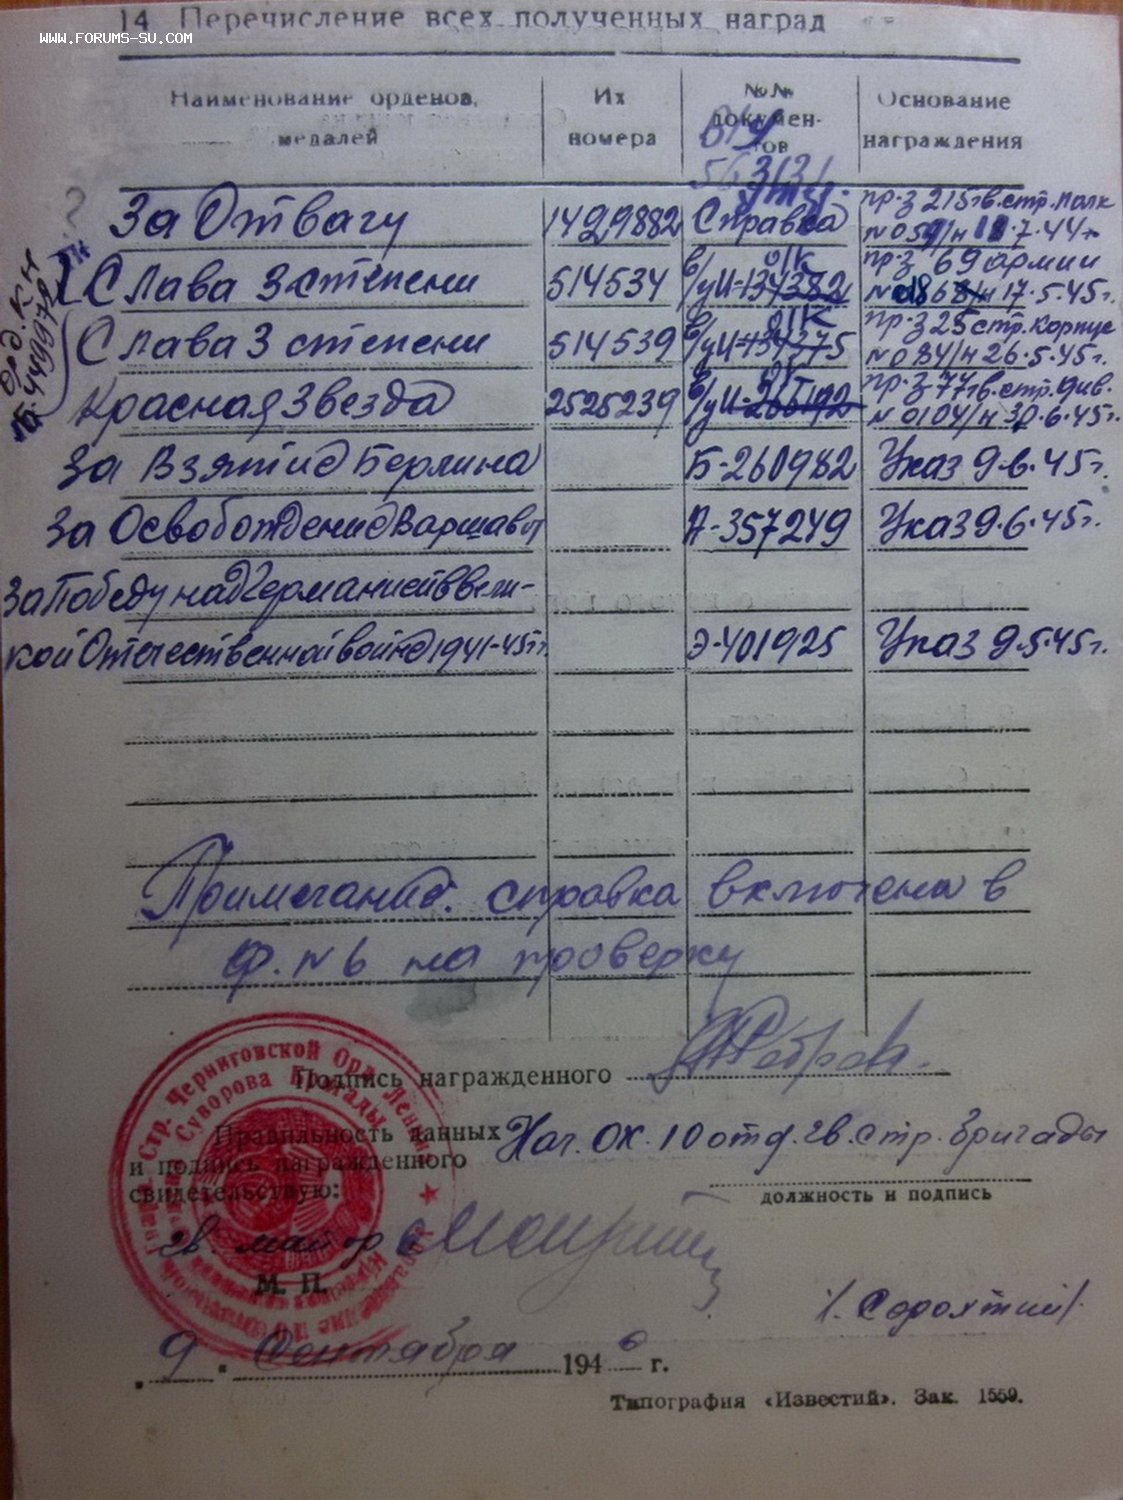 WWW.FORUMS-SU.COM
14. Перечисление всех полученных наград
Наименование орденов, медалей
Их номера
№№ документов
Основание награждения
За Отвагу 1429882 Справка пр-з 215 гв.стр.полк
7.44г
Слава 3 степени 514534 в/у И-134382 пр-з 69 армии
17.5.45г.
Слава 3 степени 514539 в/у И-134375 пр-з 25 стр.корпус
№ 084/н 26.5.45г.
Красная Звезда 2525239 в/у И- пр-з 77 гв.стр.див.
№ 0104/н 30.6.45г.
За Взятие Берлина Б-260982 Указ 9.6.45г.
За Освобождение Варшавы А-357249 Указ 9.6.45г.
За Победу над Германией в Вели-
кой Отечественной войне 1941-45гг. Э-401925 Указ 9.5.45г.
Орд. КЗ
Примечание: справка включена в
ф. №6 на проверку
Подпись награжденного
Правильность данных
и подпись награженного
свидетельствую:
Нач. ОК. 10 отд. гв. стр. бригады
должность и подпись
гв. майор
М. П.
/. Сорохтий/.
9 Сентября 1946 г.
Стр. Черниговской Орд. Ленина
Суворова Бригады
Типография «Известий». Зак. 1559.